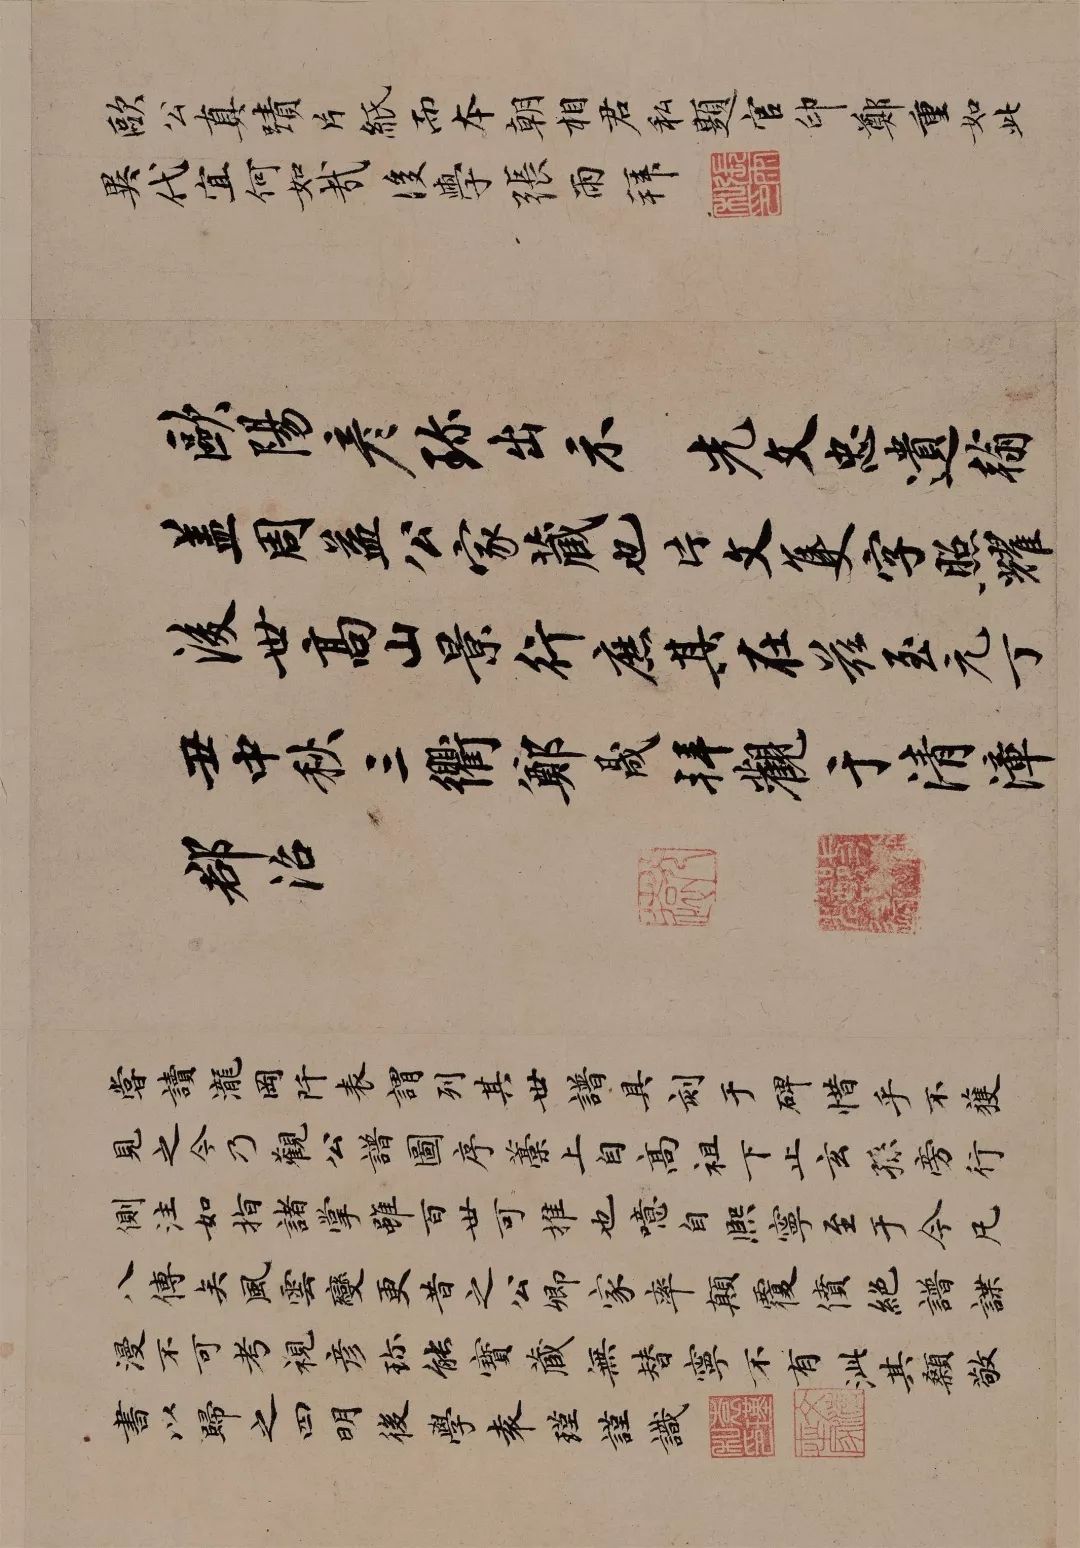 歐公真蹟片紙而本朝相君私題官印鄭重如此
異代宜何如哉後學張雨拜
歐陽彥珎出示 先文忠遺翰
盖周益公家藏也片文隻字照耀
後世高山景行庶其在茲至元丁
丑中秋三衢鄭晟拜觀于清漳
郡治
嘗讀瀧岡阡表謂列其世譜具刻于碑惜乎不獲
見之今乃觀公譜圖序藁上自高祖下止玄孫旁行
側注如指諸掌雖百世可推也噫自熙寧至于今凡
八傳矣風雲變更昔之公卿家率顛覆僨絕譜諜
漫不可考視彥珎能寶藏無替寧不有泚其顙敬
書以歸之四明後學袁瑾謹識